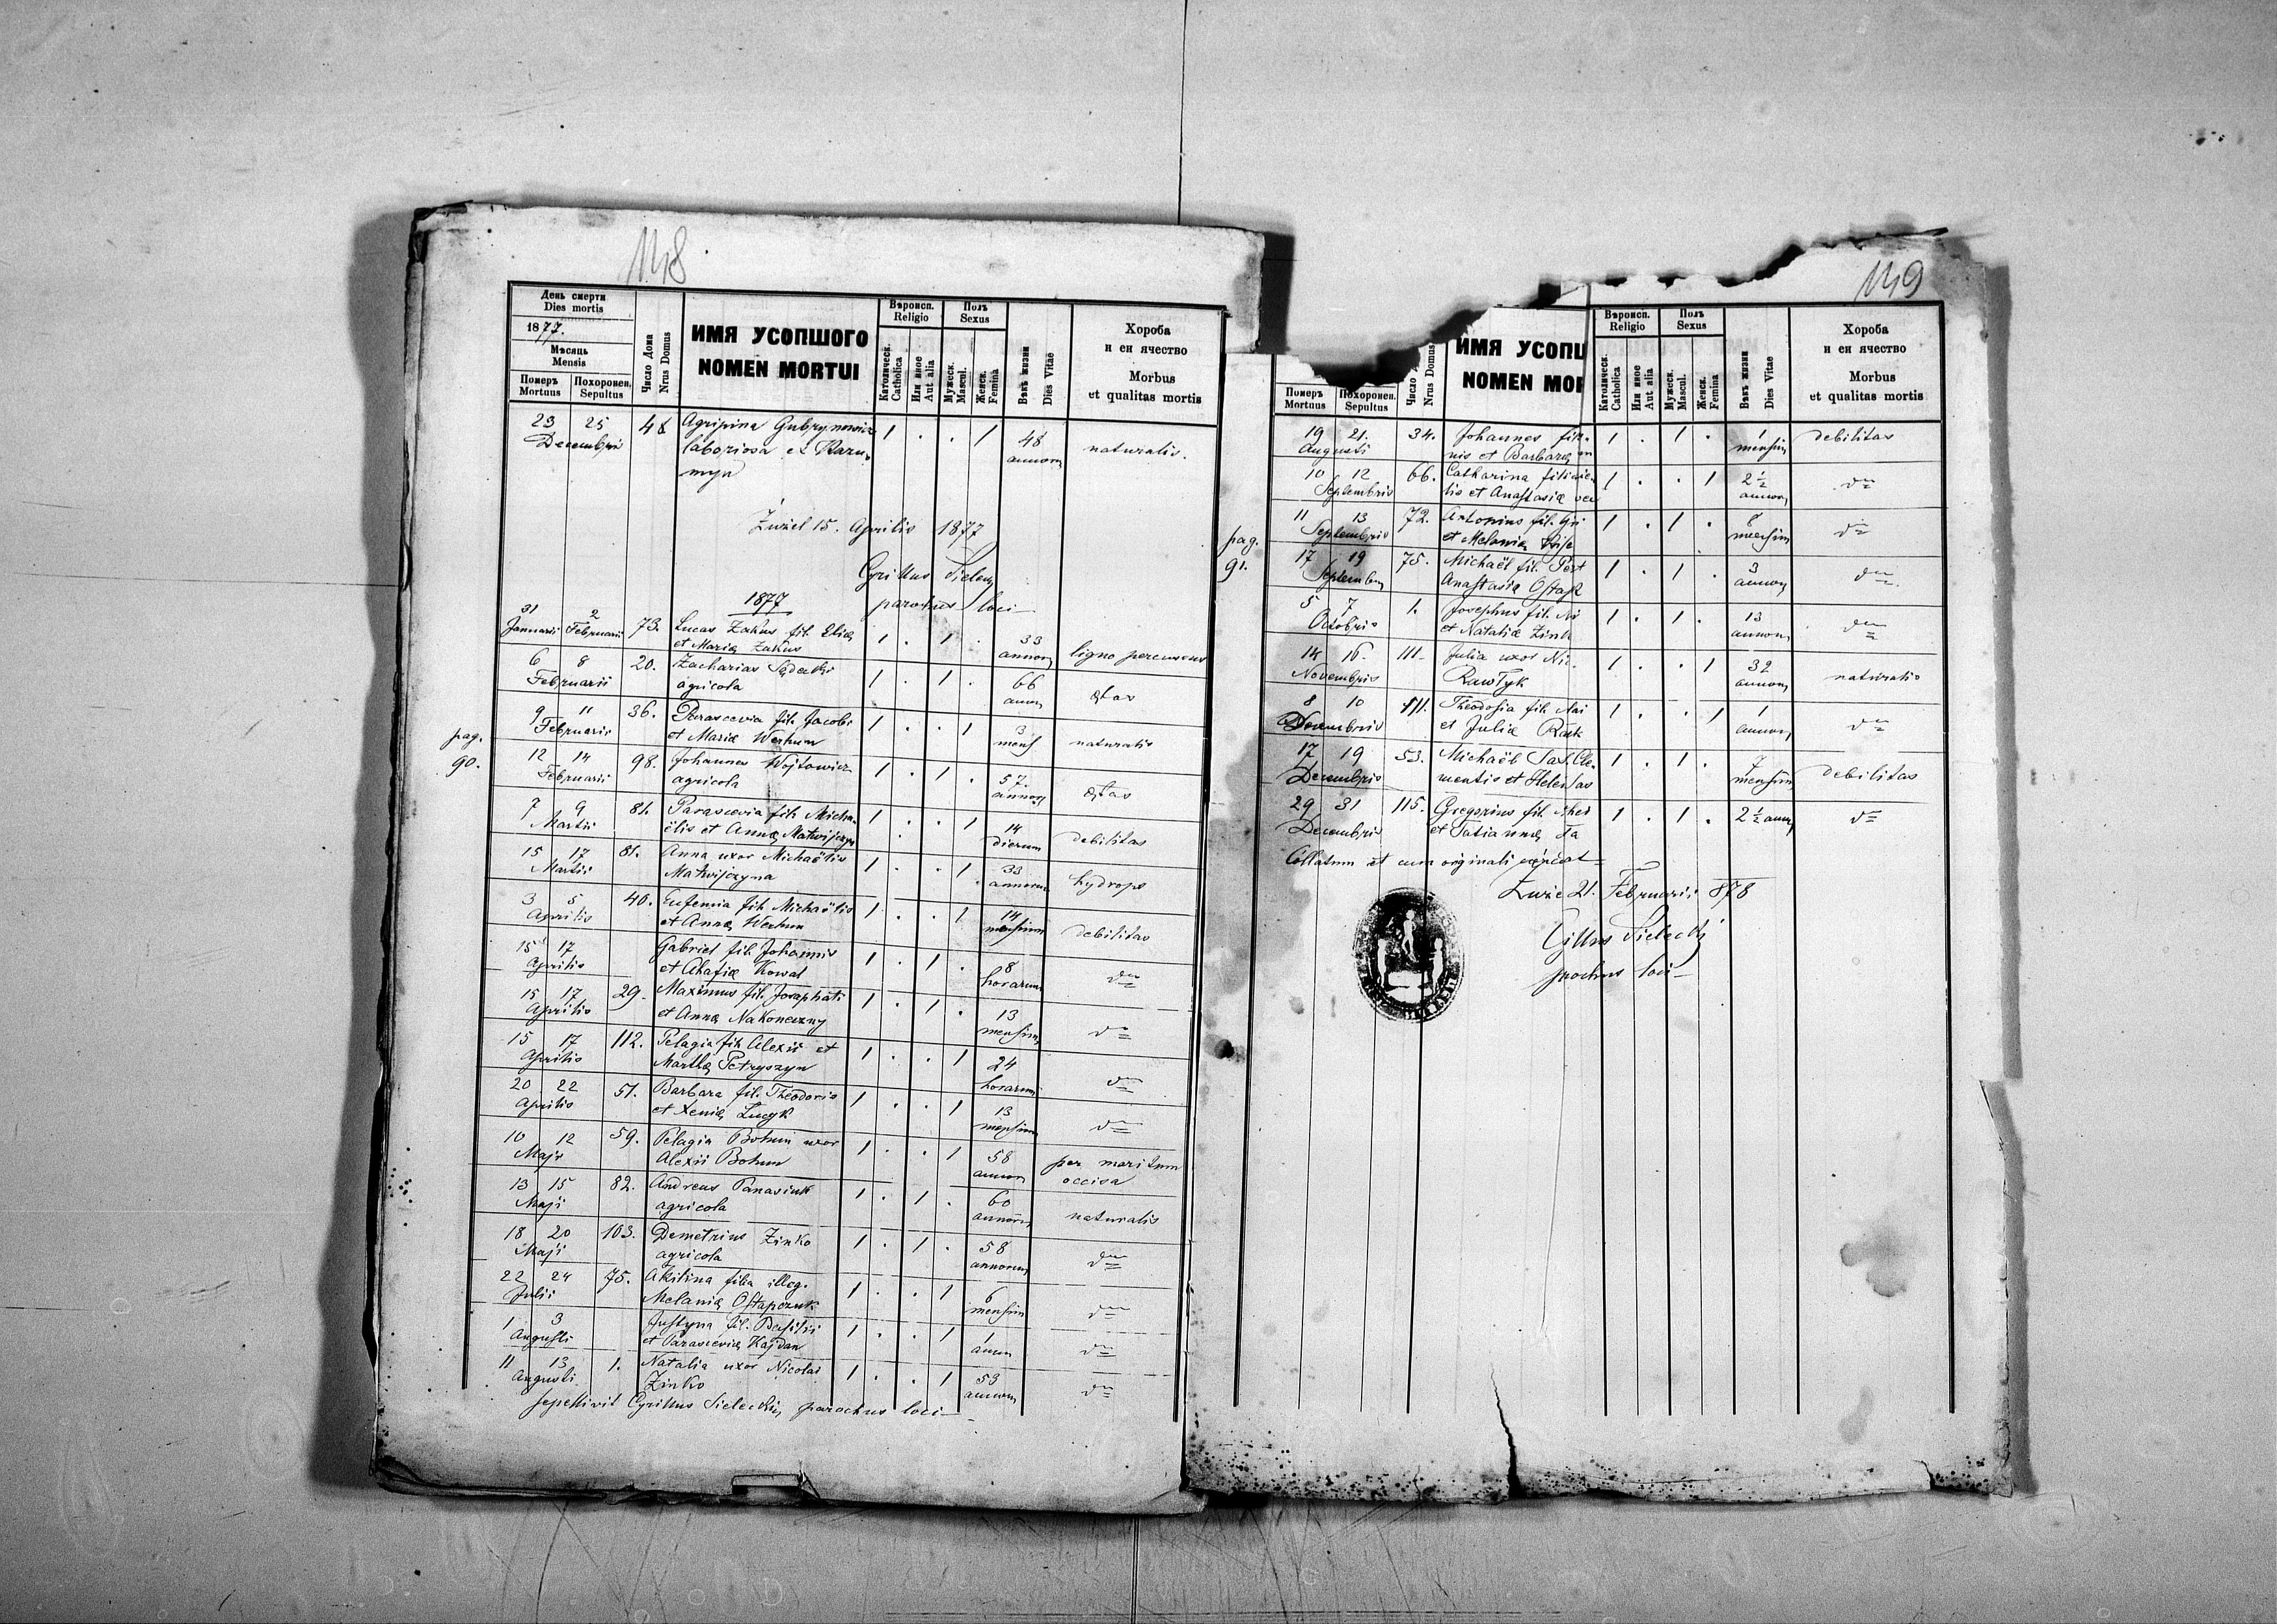 148
День смерти
Dies mortis
1877.
Мѣсяць
Mensis
Померъ
Mortuus
Похоронен.
Sepultus
Число Дома
Nrus Domus
ИМЯ УСОПШОГО
NOMEN MORTUI
Вѣроисп.
Religio
Католическ.
Catholica
Или иное
Aut alia
Полъ
Sexus
Мужеск.
Mascul.
Женск.
Femina
Вѣкъ жизни
Dies Vitae
Хороба
и еи ячество
Morbus
et qualitas mortis
23 25 48 Agripina Gubrynowicz 1 . . 1 48 naturalis.
Decembris laboriosa et annorum
Żuziel 15. Aprilis 1877
Cyrillus Sielecki
parochus loci
1877
31 2 73. Lucas Zakus fil. Eliæ 1 . 1 . 33 ligno percussus
Januarii Februarii et Mariæ Zakus annorum
6 8 20. Zacharias Sądecki 1 . 1 . 66 ætas
Februarii agricola
9 11 36. Parascevia fil. Jacobi 1 . . 1 3 naturalis
Februarii et Mariæ Werhun mens
pag.
90.
12 14 98. Johannes Wojtowicz 1 . 1 . 57. ætas
Februarii agricola annorum
7 9 81. Parascevia fil. Micha- 1 . . 1 14 debilitas
Martii ëlis et Annæ Matwijczyn dierum
15 17 81. Anna uxor Michaëlis 1 . . 1 33 hydrops
Martii Matwijczyna annorum
3 5 40. Eufemia fil. Michaëlis 1 . . 1 14 debilitas
Aprilis et Annæ Werhun mensium
15 17 Gabriel fil. Johannis 1 . 1 . 8 dto
Aprilis et Ahafiæ Kowal horarum
15 17 29. Maximus fil. Josaphati 1 . 1 . 13 dto
Aprilis et Annæ Nakoneczny mensium
15 17 112. Pelagia fil. Alexii et 1 . . 1 24 dto
Aprilis Marthæ Petryszyn horarum
20 22 51. Barbara fil. Theodoris 1 . . 1 13 dto
Aprilis et Xeniæ Lucyk mensium
10 12 59. Pelagia Bohun uxor 1 . . 1 58 per maritum
Maji Alexii Bohun annor occisa
13 15 82. Andreas Panasiuk 1 . 1 . 60 naturalis
Maji agricola annorum
18 20 103. Demetrius Zinko 1 . 1 . 58 dto
Maji agricola annorum
22 24 75. Akilina filia illeg. 1 . . 1 6 dto
Julii Melaniæ Ostapczuk mensium
1 3 Justyna fil. Basilii 1 . . 1 1 dto
Augusti et Parasceviæ Kajdan anni
11 13 1. Natalia uxor Nicolai 1 . . 1 53 dto
Augusti Zinko annorum
sepelivit Cyrillus Sielecki, parochus loci
149
Померъ
Mortuus
Похоронен.
Sepultus
Число
Nrus Domus
ИМЯ УСОПШ
NOMEN MOR
Вѣроисп.
Religio
Католическ.
Catholica
Или иное
Aut alia
Полъ
Sexus
Мужеск.
Mascul.
Женск.
Femina
Вѣкъ жизни
Dies Vitae
Хороба
и еи ячество
Morbus
et qualitas mortis
19 21. 34. Johannes fil. 1 . 1 . 1 debilitas
Augusti nis et Barbaræ mensium
10 12 66. Catharina fil. 1 . . 1 2 1/2 dto
Septembris lis et Anastasiæ annor
pag.
91.
11 13 72. Antonius fil. 1 . 1 . 8 dto
Septembris et Melaniæ mensium
17 19 75. Michaël fil. 1 . 1 . 3 dto
Septembris Anastasiæ Ostap annor
5 7 1. Josephus fil. Ni 1 . 1 . 13 dto
Octobris et Nataliæ Zink annorum
14 16. 111. Julia uxor Nic. 1 . . 1 32 naturalis
Novembris Rawlyk annorum
8 10 111. Theodosia fil. 1 . . 1 1 dto
Decembris et Juliæ annor
17 19 53. Michaël Sas. Cle- 1 . 1 . 7 debilitas
Decembris mentis et Helen Sas mensium
29 31 115. Gregorius fil. 1 . 1 . 2 1/2 annor dto
Decembris et Tatiannæ
Collatum et cum originali
Februarii 878
Sielecki
loci